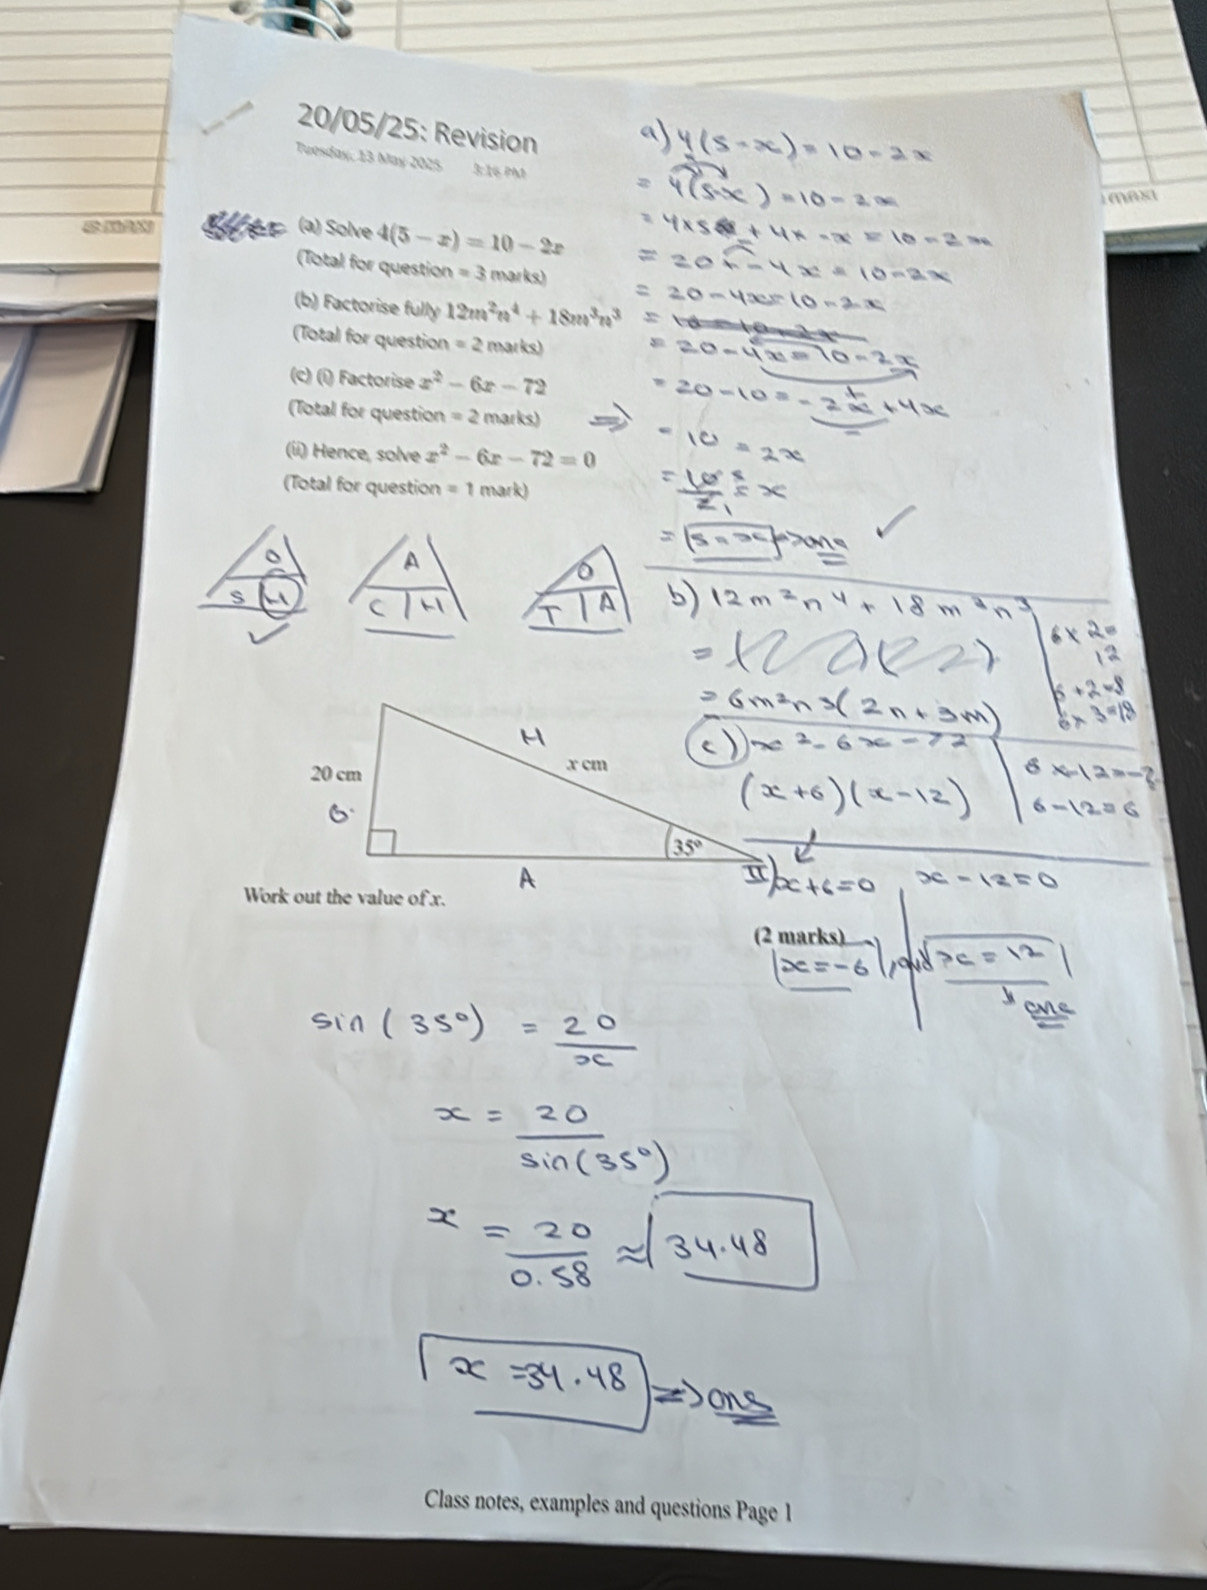 20/05/25: Revision
Tuesday, 13 May 2025 3:16 PM
(a) Solve 4(5 − x) = 10 − 2x
(Total for question = 3 marks)
(b) Factorise fully 12m²n⁴ + 18m³n³
(Total for question = 2 marks)
(c) (i) Factorise x² − 6x − 72
(Total for question = 2 marks)
(ii) Hence, solve x² − 6x − 72 = 0
(Total for question = 1 mark)
a) 4(5-x) = 10-2x
= 4(5-x) = 10-2x
= 4x5 + 4x -x = 10-2x
= 20+-4x = 10-2x
= 20-4x=10-2x
= 20-4x=10-2x
= 20-10 = -2x+4x
⇒
= 10 = 2x
= 10/2 = x
= 5=x => ans ✓
O
S H
✓
A
C H
O
T A
b) 12m²n⁴ + 18m³n³
= 6m²n3(2n+3m)
6x2=
12
6+2=8
6x3=18
c) x²-6x-72
(x+6)(x-12)
6-12=6
II) x+6=0 x-12=0
x=-6, and x=12
ans
H
20 cm
x cm
O
35°
A
Work out the value of x.
(2 marks)
sin(35°) = 20/x
x = 20/sin(35°)
x = 20/0.58 ≈ 34.48
x =34.48 => ans
Class notes, examples and questions Page 1